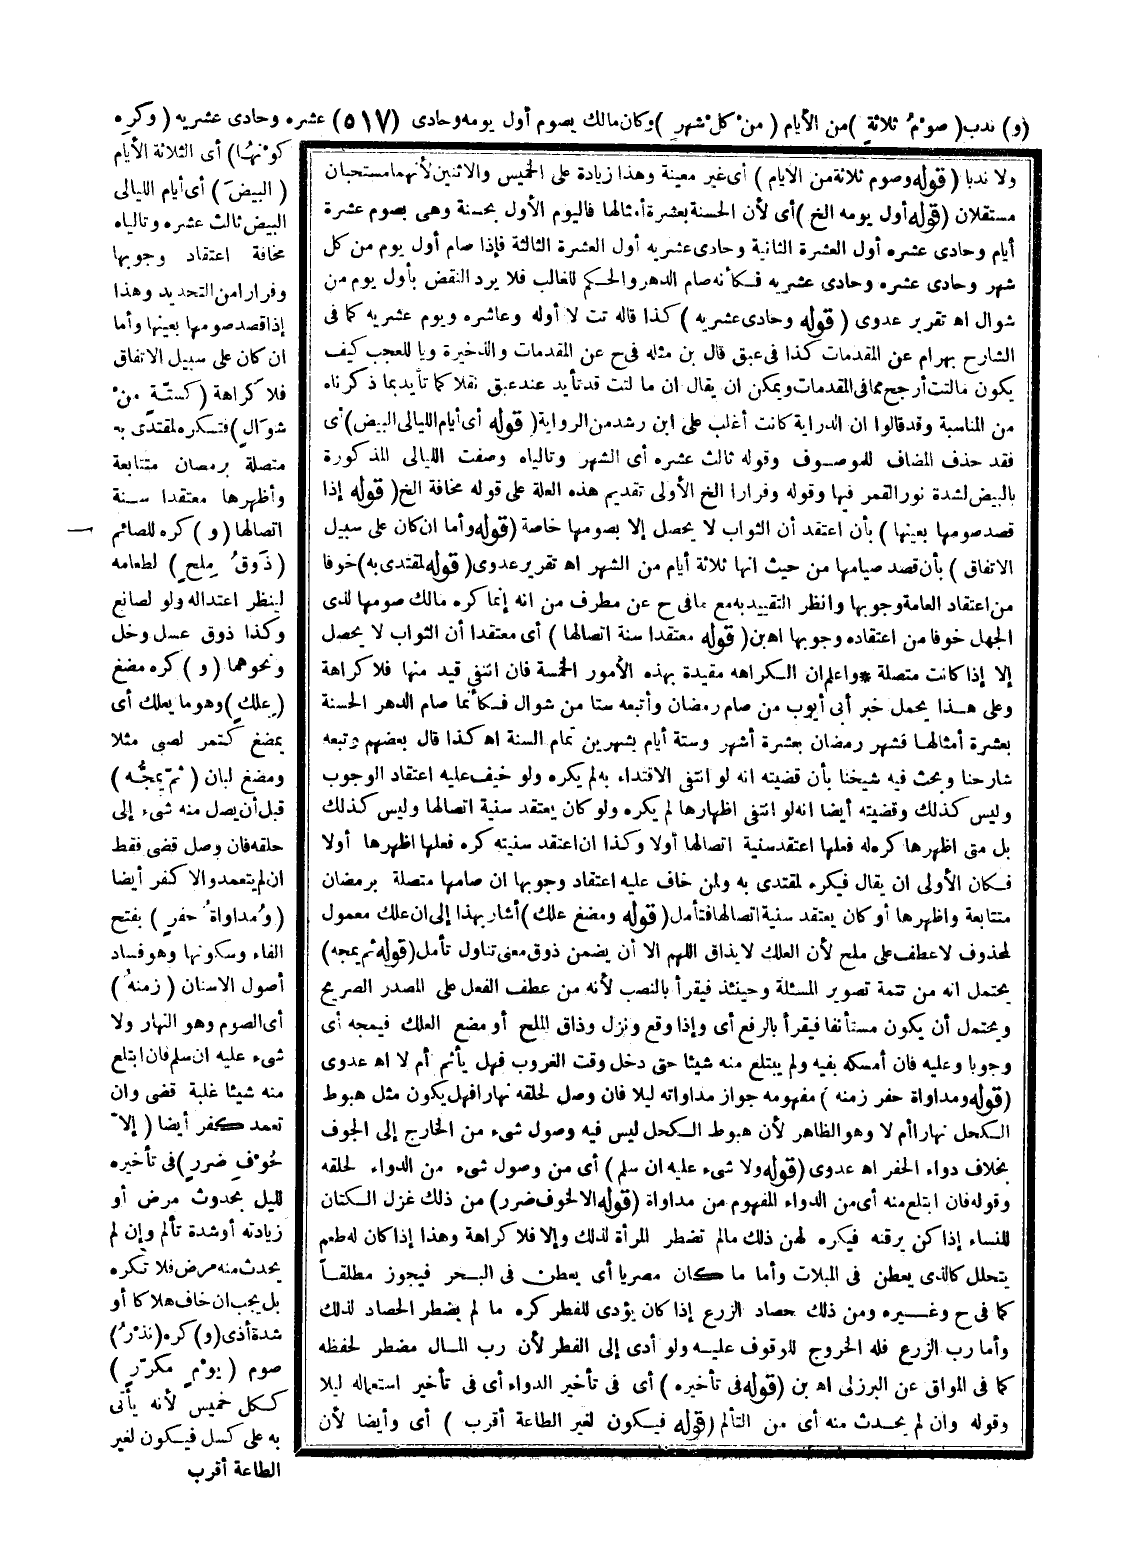 (و) ندب (صوْمُ ثلاثةٍ) من الأيام (منْ كلِّ شهرٍ) وكان مالك يصوم أول يومه وحادى (٥١٧) عشره وحادى عشريه (وكرِه
كوْنُها) أى الثلاثة الأيام
(البيضَ) أى أيام الليالى
البيض ثالث عشره وتالياه
مخافة اعتقاد وجوبها
وفرارا من التحديد وهذا
إذا قصد صومها بعينها وأما
ان كان على سبيل الاتفاق
فلا كراهة (كستّةٍ منْ
شوالٍ) فتكره لمقتدى به
متصلة برمضان متتابعة
وأظهرها معتقدا سنة
اتصالها (و) كره للصائم
(ذَوقُ مِلحٍ) لطعامه
لينظر اعتداله ولو لصانع
وكذا ذوق عسل وخل
ونحوهما (و) كره مضغ
(عِلكٍ) وهو ما يعلك أى
يمضغ كتمر لصبى مثلا
ومضغ لبان (ثمّ يمجُّه)
قبل أن يصل منه شىء إلى
حلقه فان وصل قضى فقط
ان لم يتعمد والا كفر أيضا
(ومُداواةُ حفرٍ) بفتح
الفاء وسكونها وهو فساد
أصول الاسنان (زمنهُ)
أى الصوم وهو النهار ولا
شىء عليه ان سلم فان ابتلع
منه شيئا غلبة قضى وان
تعمد كفر أيضا (إلاّ
لخوْفِ ضررٍ) فى تأخيره
لليل بحدوث مرض أو
زيادته أو شدة تألم وإن لم
يحدث منه مرض فلا تكره
بل يجب ان خاف هلاكا أو
شدة أذى (و) كره (نذْرُ)
صوم (يوْمٍ مكرّرٍ)
ككل خميس لأنه يأتى
به على كسل فيكون لغير
الطاعة أقرب
ولا ندبا (قوله وصوم ثلاثة من الأيام) أى غير معينة وهذا زيادة على الخميس والاثنين لأنهما مستحبان
مستقلان (قوله أول يومه الخ) أى لأن الحسنة بعشرة أمثالها فاليوم الأول بحسنة وهى بصوم عشرة
أيام وحادى عشره أول العشرة الثانية وحادى عشريه أول العشرة الثالثة فإذا صام أول يوم من كل
شهر وحادى عشره وحادى عشريه فكأنه صام الدهر والحكم للغالب فلا يرد النقض بأول يوم من
شوال اه تقرير عدوى (قوله وحادى عشريه) كذا قاله تت لا أوله وعاشره ويوم عشريه كما فى
الشارح بهرام عن المقدمات كذا فى عبق قال بن مثله فى ح عن المقدمات والذخيرة ويا للعجب كيف
يكون ما لتت أرجح مما فى المقدمات ويمكن ان يقال ان ما لتت قد تأيد عند عبق نقلا كما تأيد بما ذكرناه
من المناسبة وقد قالوا ان الدراية كانت أغلب على ابن رشد من الرواية (قوله أى أيام الليالى البيض) أى
فقد حذف المضاف للموصوف وقوله ثالث عشره أى الشهر وتالياه وصفت الليالى المذكورة
بالبيض لشدة نور القمر فيها وقوله وفرارا الخ الأولى تقديم هذه العلة على قوله مخافة الخ (قوله إذا
قصد صومها بعينها) بأن اعتقد أن الثواب لا يحصل إلا بصومها خاصة (قوله وأما ان كان على سبيل
الاتفاق) بأن قصد صيامها من حيث انها ثلاثة أيام من الشهر اه تقرير عدوى (قوله لمقتدى به) خوفا
من اعتقاد العامة وجوبها وانظر التقييد به مع ما فى ح عن مطرف من انه إنما كره مالك صومها لذى
الجهل خوفا من اعتقاده وجوبها اه بن (قوله معتقدا سنة اتصالها) أى معتقدا أن الثواب لا يحصل
إلا إذا كانت متصلة * واعلم ان الكراهه مقيدة بهذه الأمور الخمسة فان انتفى قيد منها فلا كراهة
وعلى هذا يحمل خبر أبى أيوب من صام رمضان وأتبعه ستا من شوال فكأنما صام الدهر الحسنة
بعشرة أمثالها فشهر رمضان بعشرة أشهر وستة أيام بشهرين تمام السنة اه كذا قال بعضهم وتبعه
شارحنا وبحث فيه شيخنا بأن قضيته انه لو انتفى الاقتداء به لم يكره ولو خيف عليه اعتقاد الوجوب
وليس كذلك وقضيته أيضا انه لو انتفى اظهارها لم يكره ولو كان يعتقد سنية اتصالها وليس كذلك
بل متى اظهرها كره له فعلها اعتقد سنية اتصالها أولا وكذا ان اعتقد سنيته كره فعلها اظهرها أولا
فكان الأولى ان يقال فيكره لمقتدى به ولمن خاف عليه اعتقاد وجوبها ان صامها متصلة برمضان
متتابعة واظهرها أو كان يعتقد سنية اتصالها فتأمل (قوله ومضغ علك) أشار بهذا إلى ان علك معمول
لمحذوف لا عطف على ملح لأن العلك لا يذاق اللهم الا أن يضمن ذوق معنى تناول تأمل (قوله ثم يمجه)
يحتمل انه من تتمة تصوير المسئلة وحينئذ فيقرأ بالنصب لأنه من عطف الفعل على المصدر الصريح
ويحتمل أن يكون مستأنفا فيقرأ بالرفع أى وإذا وقع ونزل وذاق الملح أو مضع العلك فيمجه أى
وجوبا وعليه فان أمسكه بفيه ولم يبتلع منه شيئا حتى دخل وقت الغروب فهل يأثم أم لا اه عدوى
(قوله ومداواة حفر زمنه) مفهومه جواز مداواته ليلا فان وصل لحلقه نهارا فهل يكون مثل هبوط
الكحل نهارا أم لا وهو الظاهر لأن هبوط الكحل ليس فيه وصول شىء من الخارج إلى الجوف
بخلاف دواء الحفر اه عدوى (قوله ولا شىء عليه ان سلم) أى من وصول شىء من الدواء لحلقه
وقوله فان ابتلع منه أى من الدواء المفهوم من مداواة (قوله الا لخوف ضرر) من ذلك غزل الكتان
للنساء إذا كن يرقنه فيكره لهن ذلك مالم تضطر المرأة لذلك وإلا فلا كراهة وهذا إذا كان له طعم
يتحلل كالذى يعطن فى المبلات وأما ما كان مصريا أى يعطن فى البحر فيجوز مطلقاً
كما فى ح وغيره ومن ذلك حصاد الزرع إذا كان يؤدى للفطر كره ما لم يضطر الحصاد لذلك
وأما رب الزرع فله الخروج للوقوف عليه ولو أدى إلى الفطر لأن رب المال مضطر لحفظه
كما فى المواق عن البرزلى اه بن (قوله فى تأخيره) أى فى تأخير الدواء أى فى تأخير استعماله ليلا
وقوله وان لم يحدث منه أى من التألم (قوله فيكون لغير الطاعة أقرب) أى وأيضا لأن